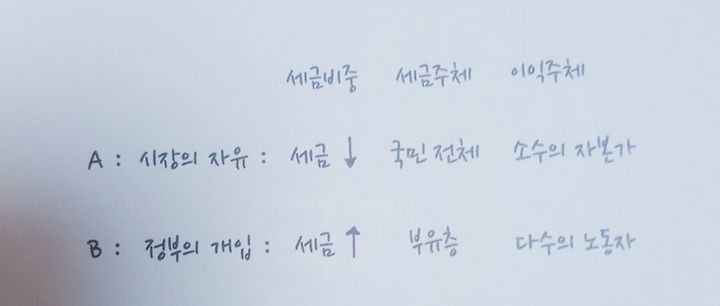 세금비중 세금주체 이익주체
A : 시장의 자유 : 세금 ↓ 국민 전체 소수의 자본가
B : 정부의 개입 : 세금 ↑ 부유층 다수의 노동자